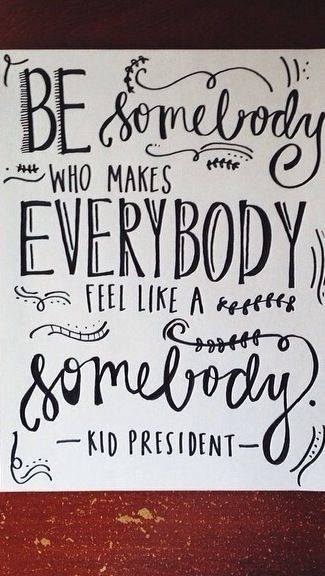 BE somebody
WHO MAKES
EVERYBODY
FEEL LIKE A
somebody.
—KID PRESIDENT—